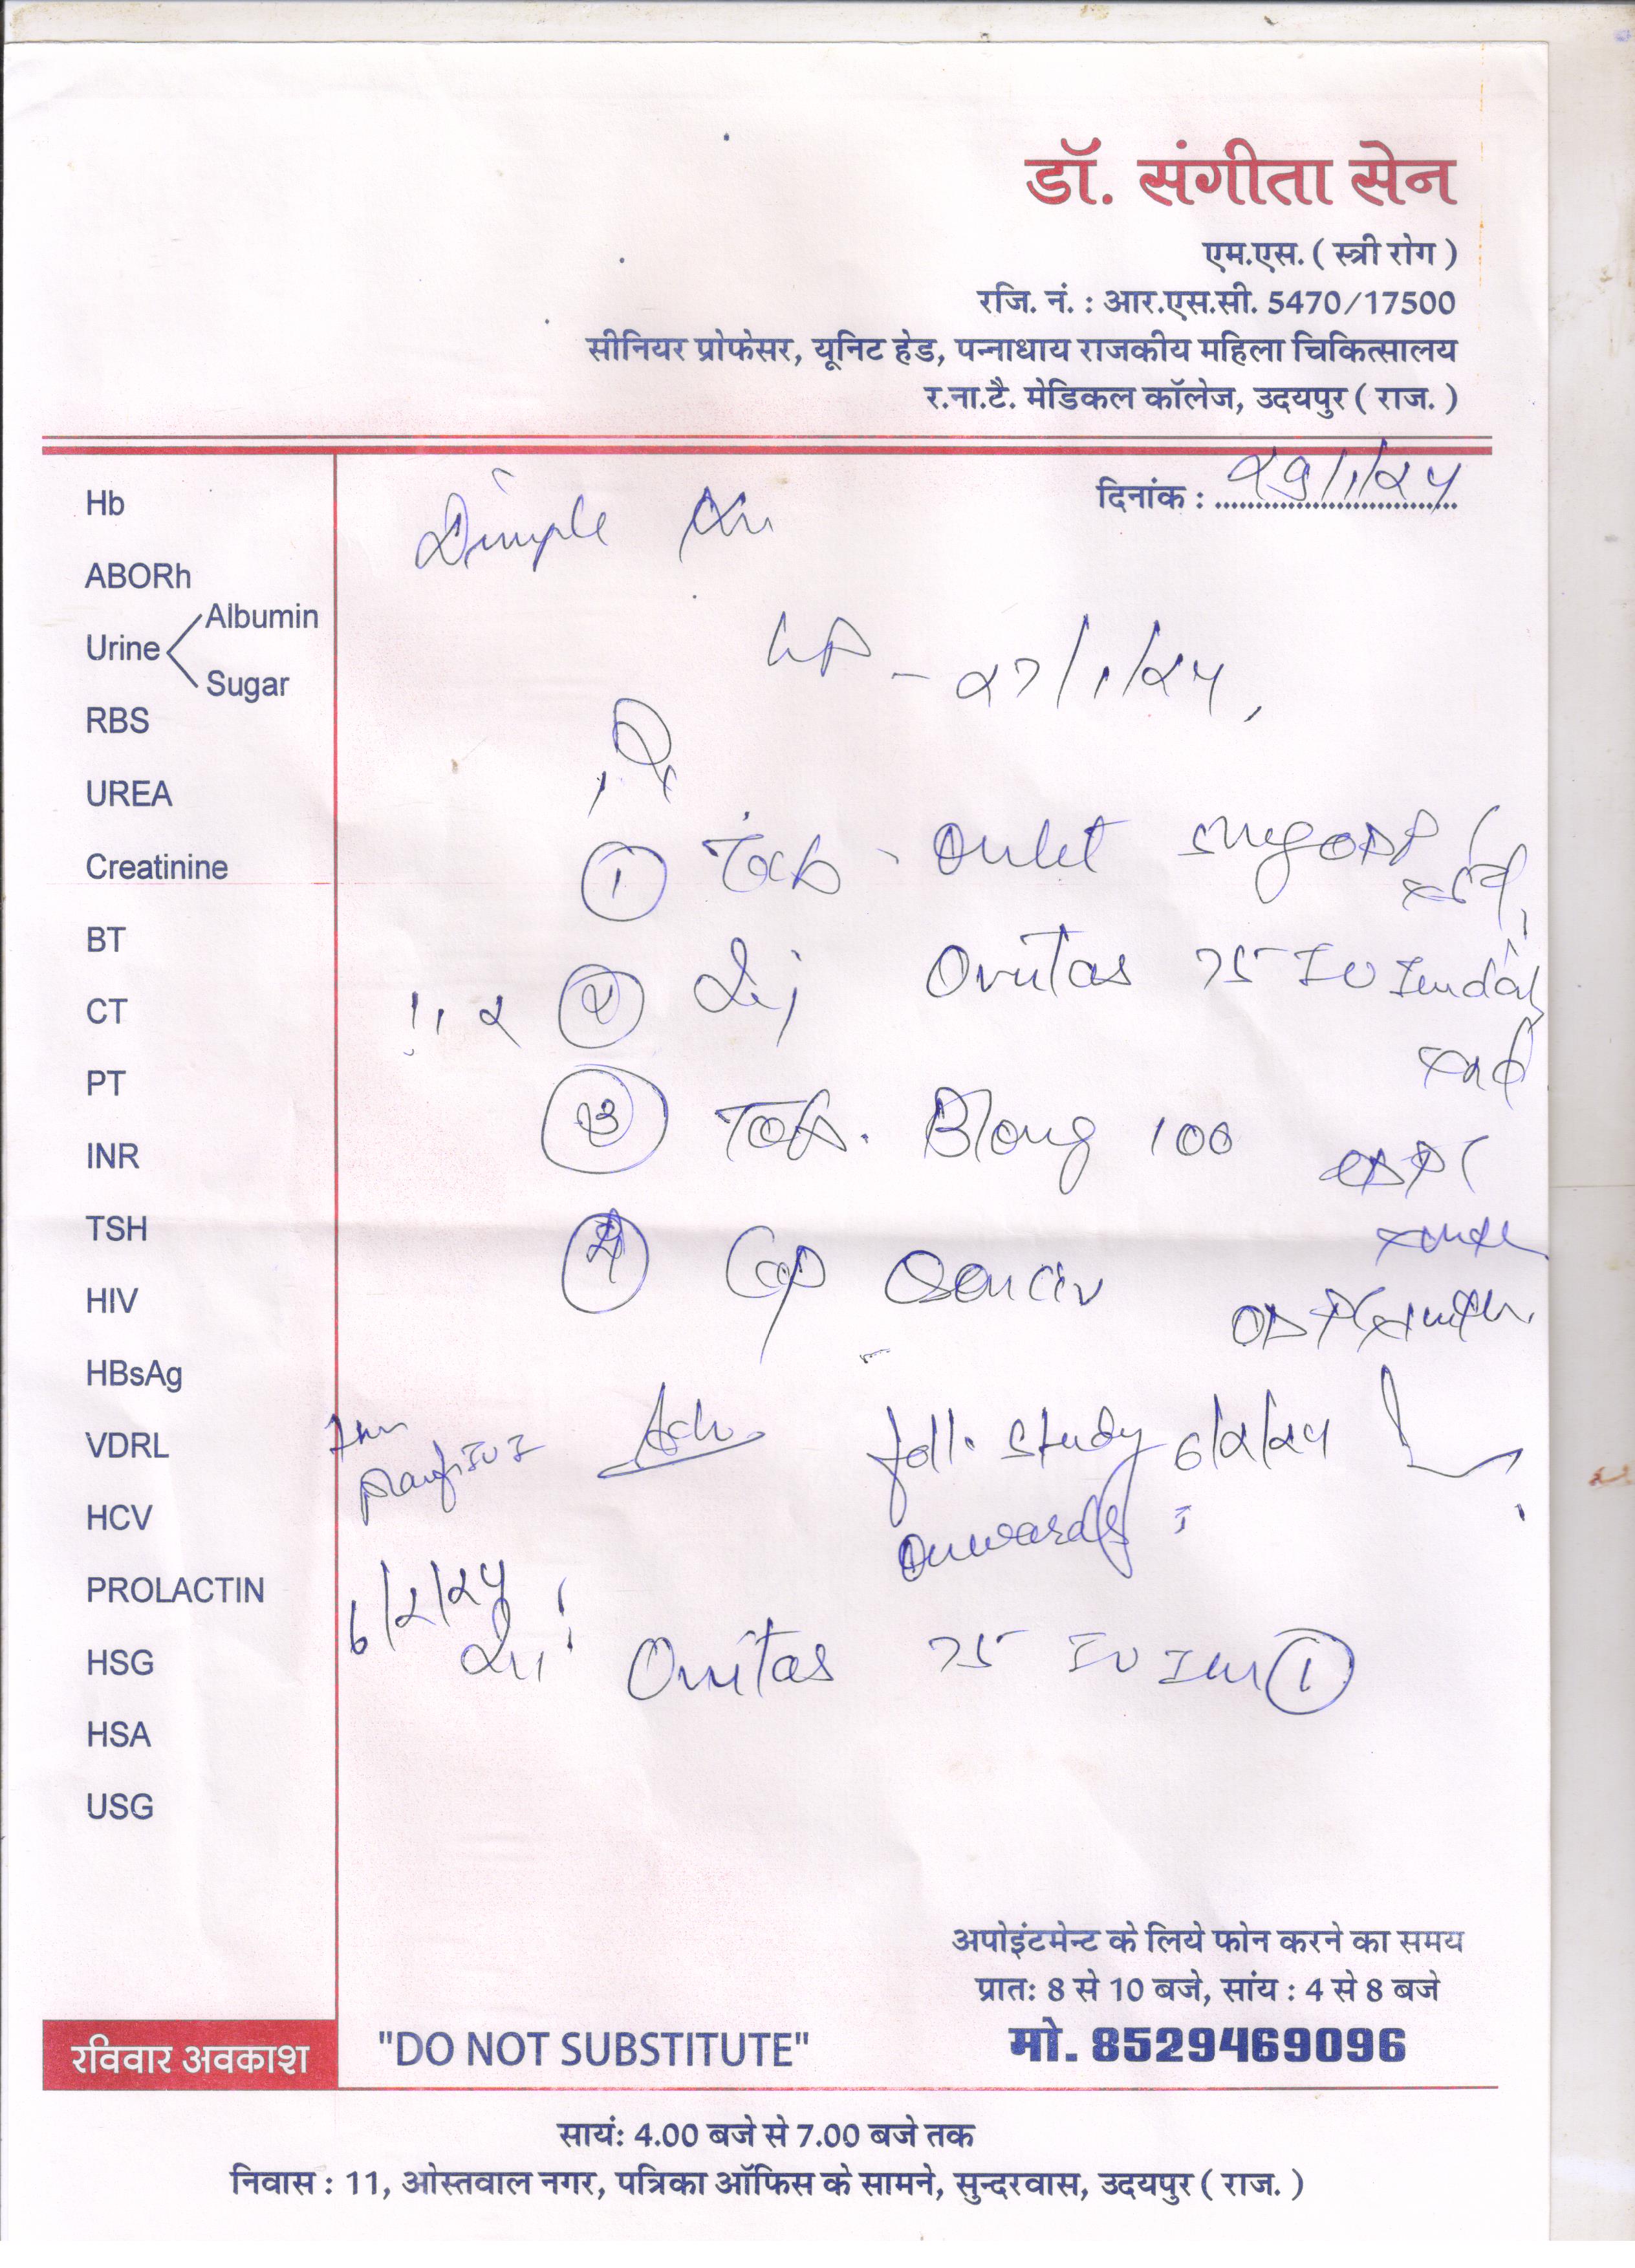 डॉ. संगीता सेन
एम.एस. ( स्त्री रोग )
रजि. नं. : आर.एस.सी. 5470/17500
सीनियर प्रोफेसर, यूनिट हेड, पन्नाधाय राजकीय महिला चिकित्सालय
र.ना.टै. मेडिकल कॉलेज, उदयपुर ( राज. )
दिनांक : 29/1/24
Dimple
27/1/24
Hb
ABORh
Urine Albumin
Sugar
RBS
UREA
Creatinine
BT
CT
PT
INR
TSH
HIV
HBsAg
VDRL
HCV
PROLACTIN
HSG
HSA
USG
Rx
① Tab - 5mg
② Inj Ovitas 75 IU
③ Tab. Blong 100
④ Cap
Adv. foll. study 6/2/24
onwards
6/2/24
Inj Ovitas 75 IU Im ①
अपोइंटमेन्ट के लिये फोन करने का समय
प्रातः 8 से 10 बजे, सांय : 4 से 8 बजे
रविवार अवकाश "DO NOT SUBSTITUTE" मो. 8529469096
सायं: 4.00 बजे से 7.00 बजे तक
निवास : 11, ओस्तवाल नगर, पत्रिका ऑफिस के सामने, सुन्दरवास, उदयपुर ( राज. )